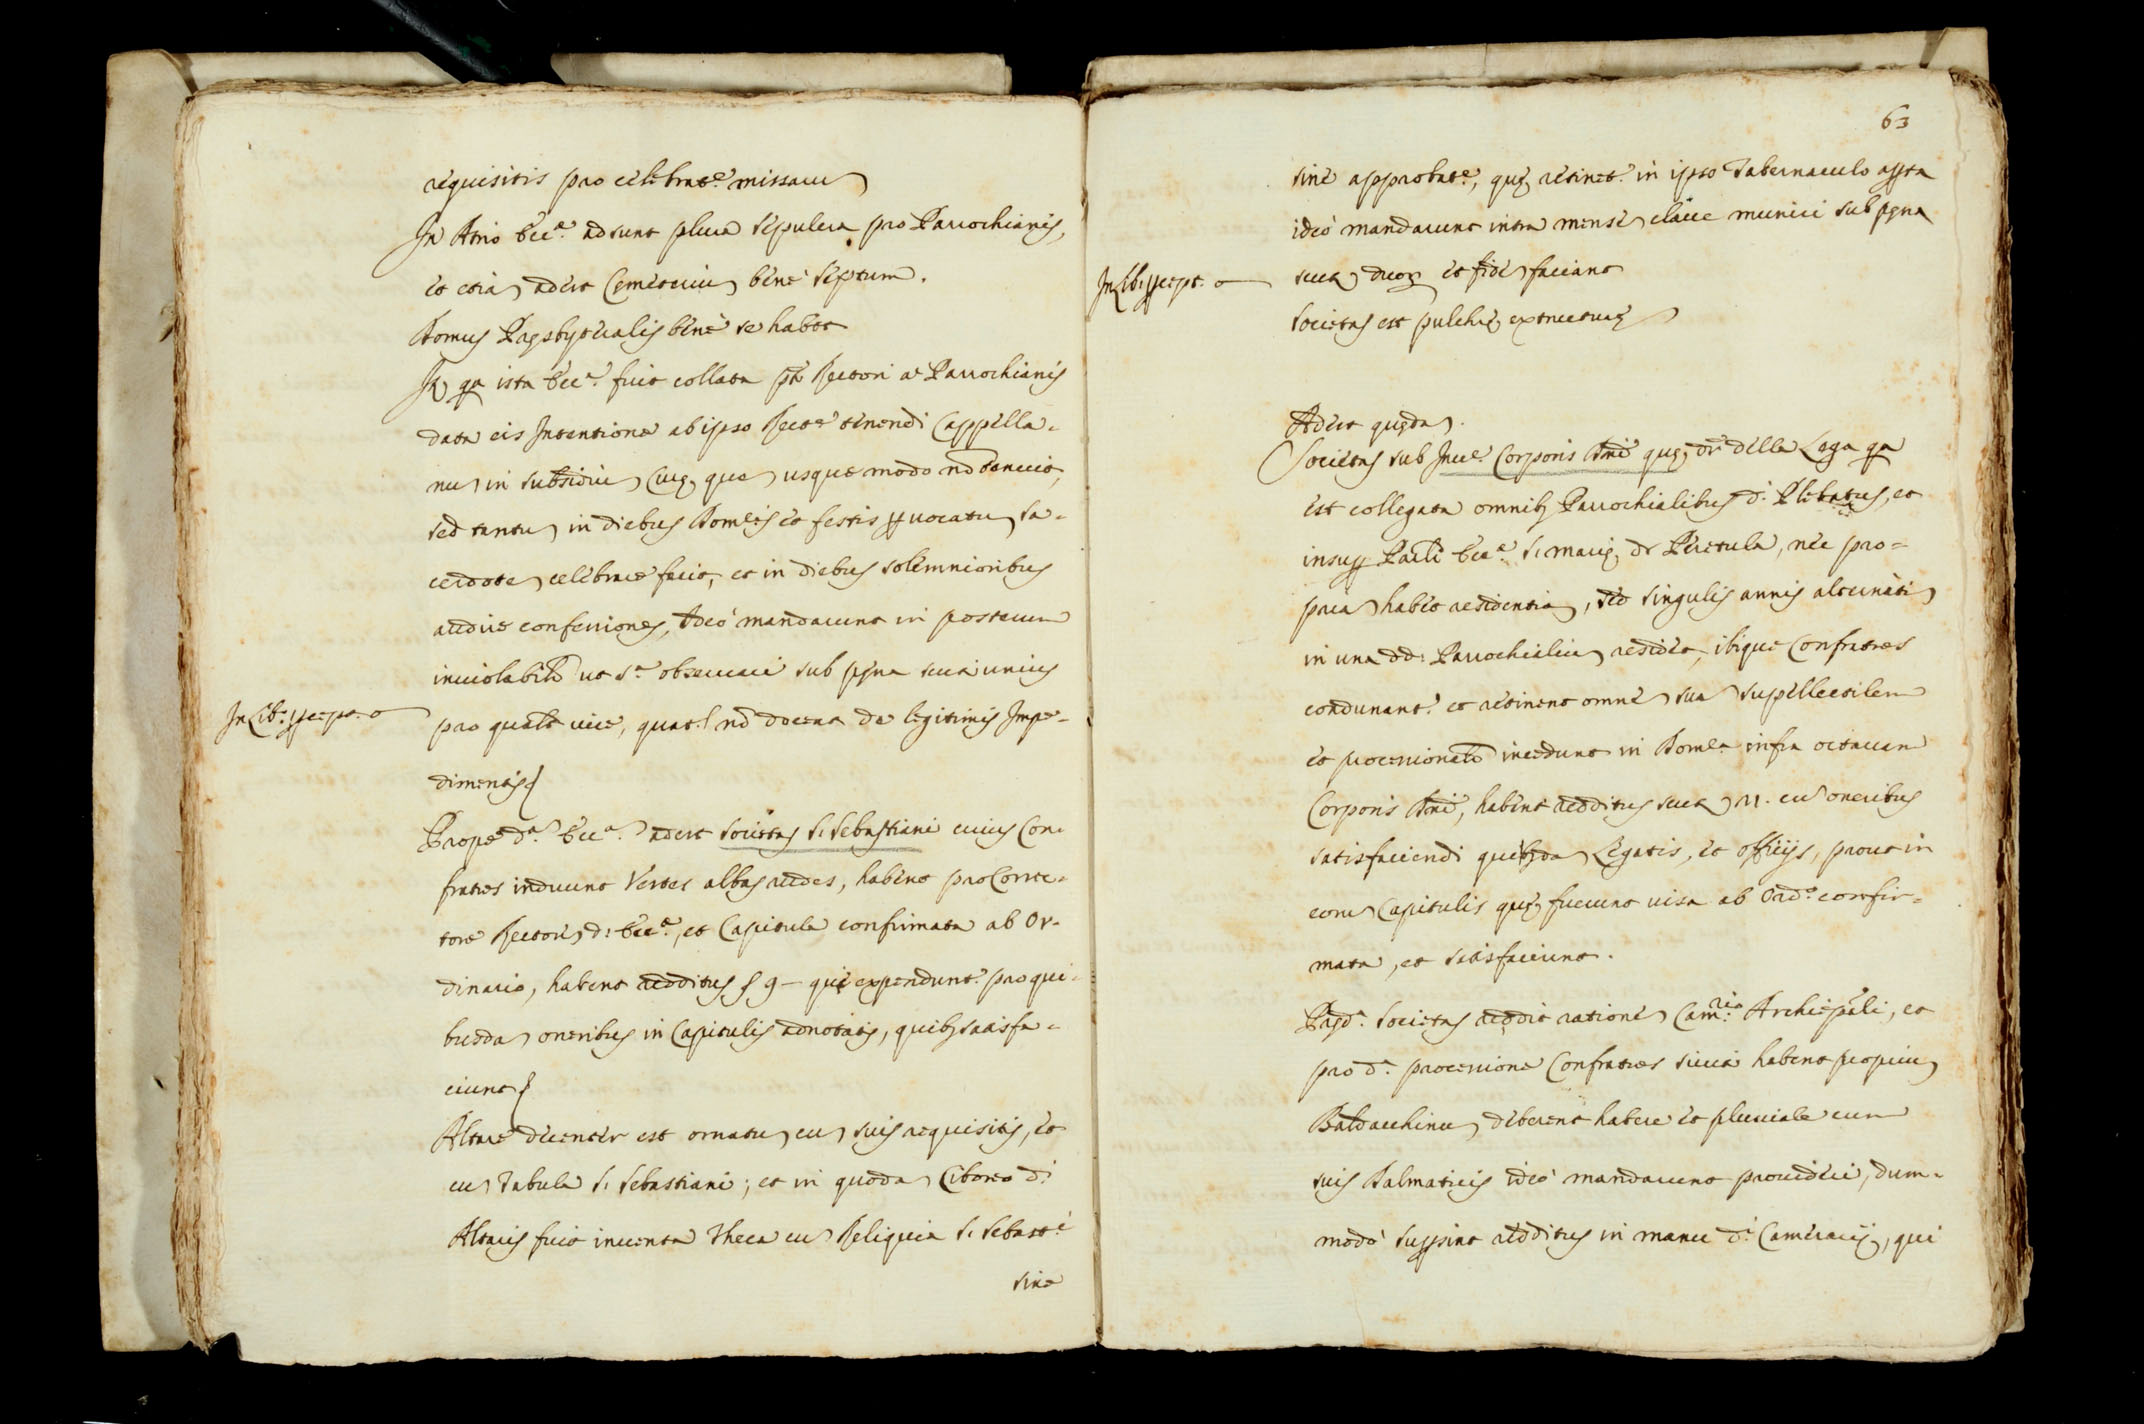 requisitis pro celebrat.e missarum
In Atrio Ecc.e adsunt plura sepulcra pro Parrochianis,
et etiã adest Cemeterium bene septum.
Domus Presbyteralis bene se habet
It. qa ista Ecc.a fuit collata Rectori a Parrochianis
data eis Intentione ab ipso Rect.e tenendi Cappella-
nũ in subsidiũ Curę, que usque modo nõ tenuit,
sed tantũ in diebus Dom.cis et festis vocatũ Sa-
cerdotẽ celebrare fecit, et in diebus solemnioribus
audire confessiones, Ideò mandarunt in posterum
inviolabilr ut s.a observari sub pęna scuti unius
In Lib. precept.
pro qualt vice, quat. nõ docent de legitimis Impe-
dimentis
Prope d.a Ecc.a adest Societas S. Sebastiani cuius Con-
fratres induunt Vestes albas rudes, habent pro Corre-
tore Rectorẽ d. Ecc.e, et Capitula confirmata ab Or-
dinario, habent redditus 9 — qui expendunt.r pro qui-
busdã oneribus in Capitulis adnotatis, quibꝫ satisfa-
ciunt
Altare decenter est ornatũ cũ suis requisitis, et
cũ Tabula S. Sebastiani; et in quodã Ciboreo d.i
Altaris fuit inventa Theca cũ Reliquia S. Sebast.i
sine
63
sine approbat.e, quę retinet.r in ipso Tabernaculo aperta
ideò mandarunt intra mensẽ clave muniri sub pęna
In Lib. precept.
scutorũ duorũ et fidẽ faciant
Societas est pulchrę extructurę
Adest quędã
Societas sub Inv.e Corporis Dñi quę dr della Lega qa
est collegata omnibꝫ Parrochialibus d. Plebatus, et
insuper Parłi Ecc.e S. Marię de Peretula, nec pro-
priã habet residentiã, sed singulis annis alternatĩ
in una dd. Parrochialiũ residet, ibique Confratres
coadunant.r et retinent omnẽ suã supellectilem
et processionałr incedunt in Dom.ca infra octavam
Corporis Dñi, habent redditus scut. 11. cũ oneribus
satisfaciendi quibꝫdã Legatis, et officijs, prout in
eorũ Capitulis quę fuerunt visa ab Ord.o confir-
mata, et satisfaciunt.
Pręd.a Societas reddit rationẽ Cam.rio Archiepłi, et
pro d.a processione Confratres sicuti habent propriũ
Baldacchinũ, deberent habere et pluviale cum
suis Dalmaticis ideò mandarunt provideri, dum-
modò supsint redditus in manu d.i Camerarij, qui